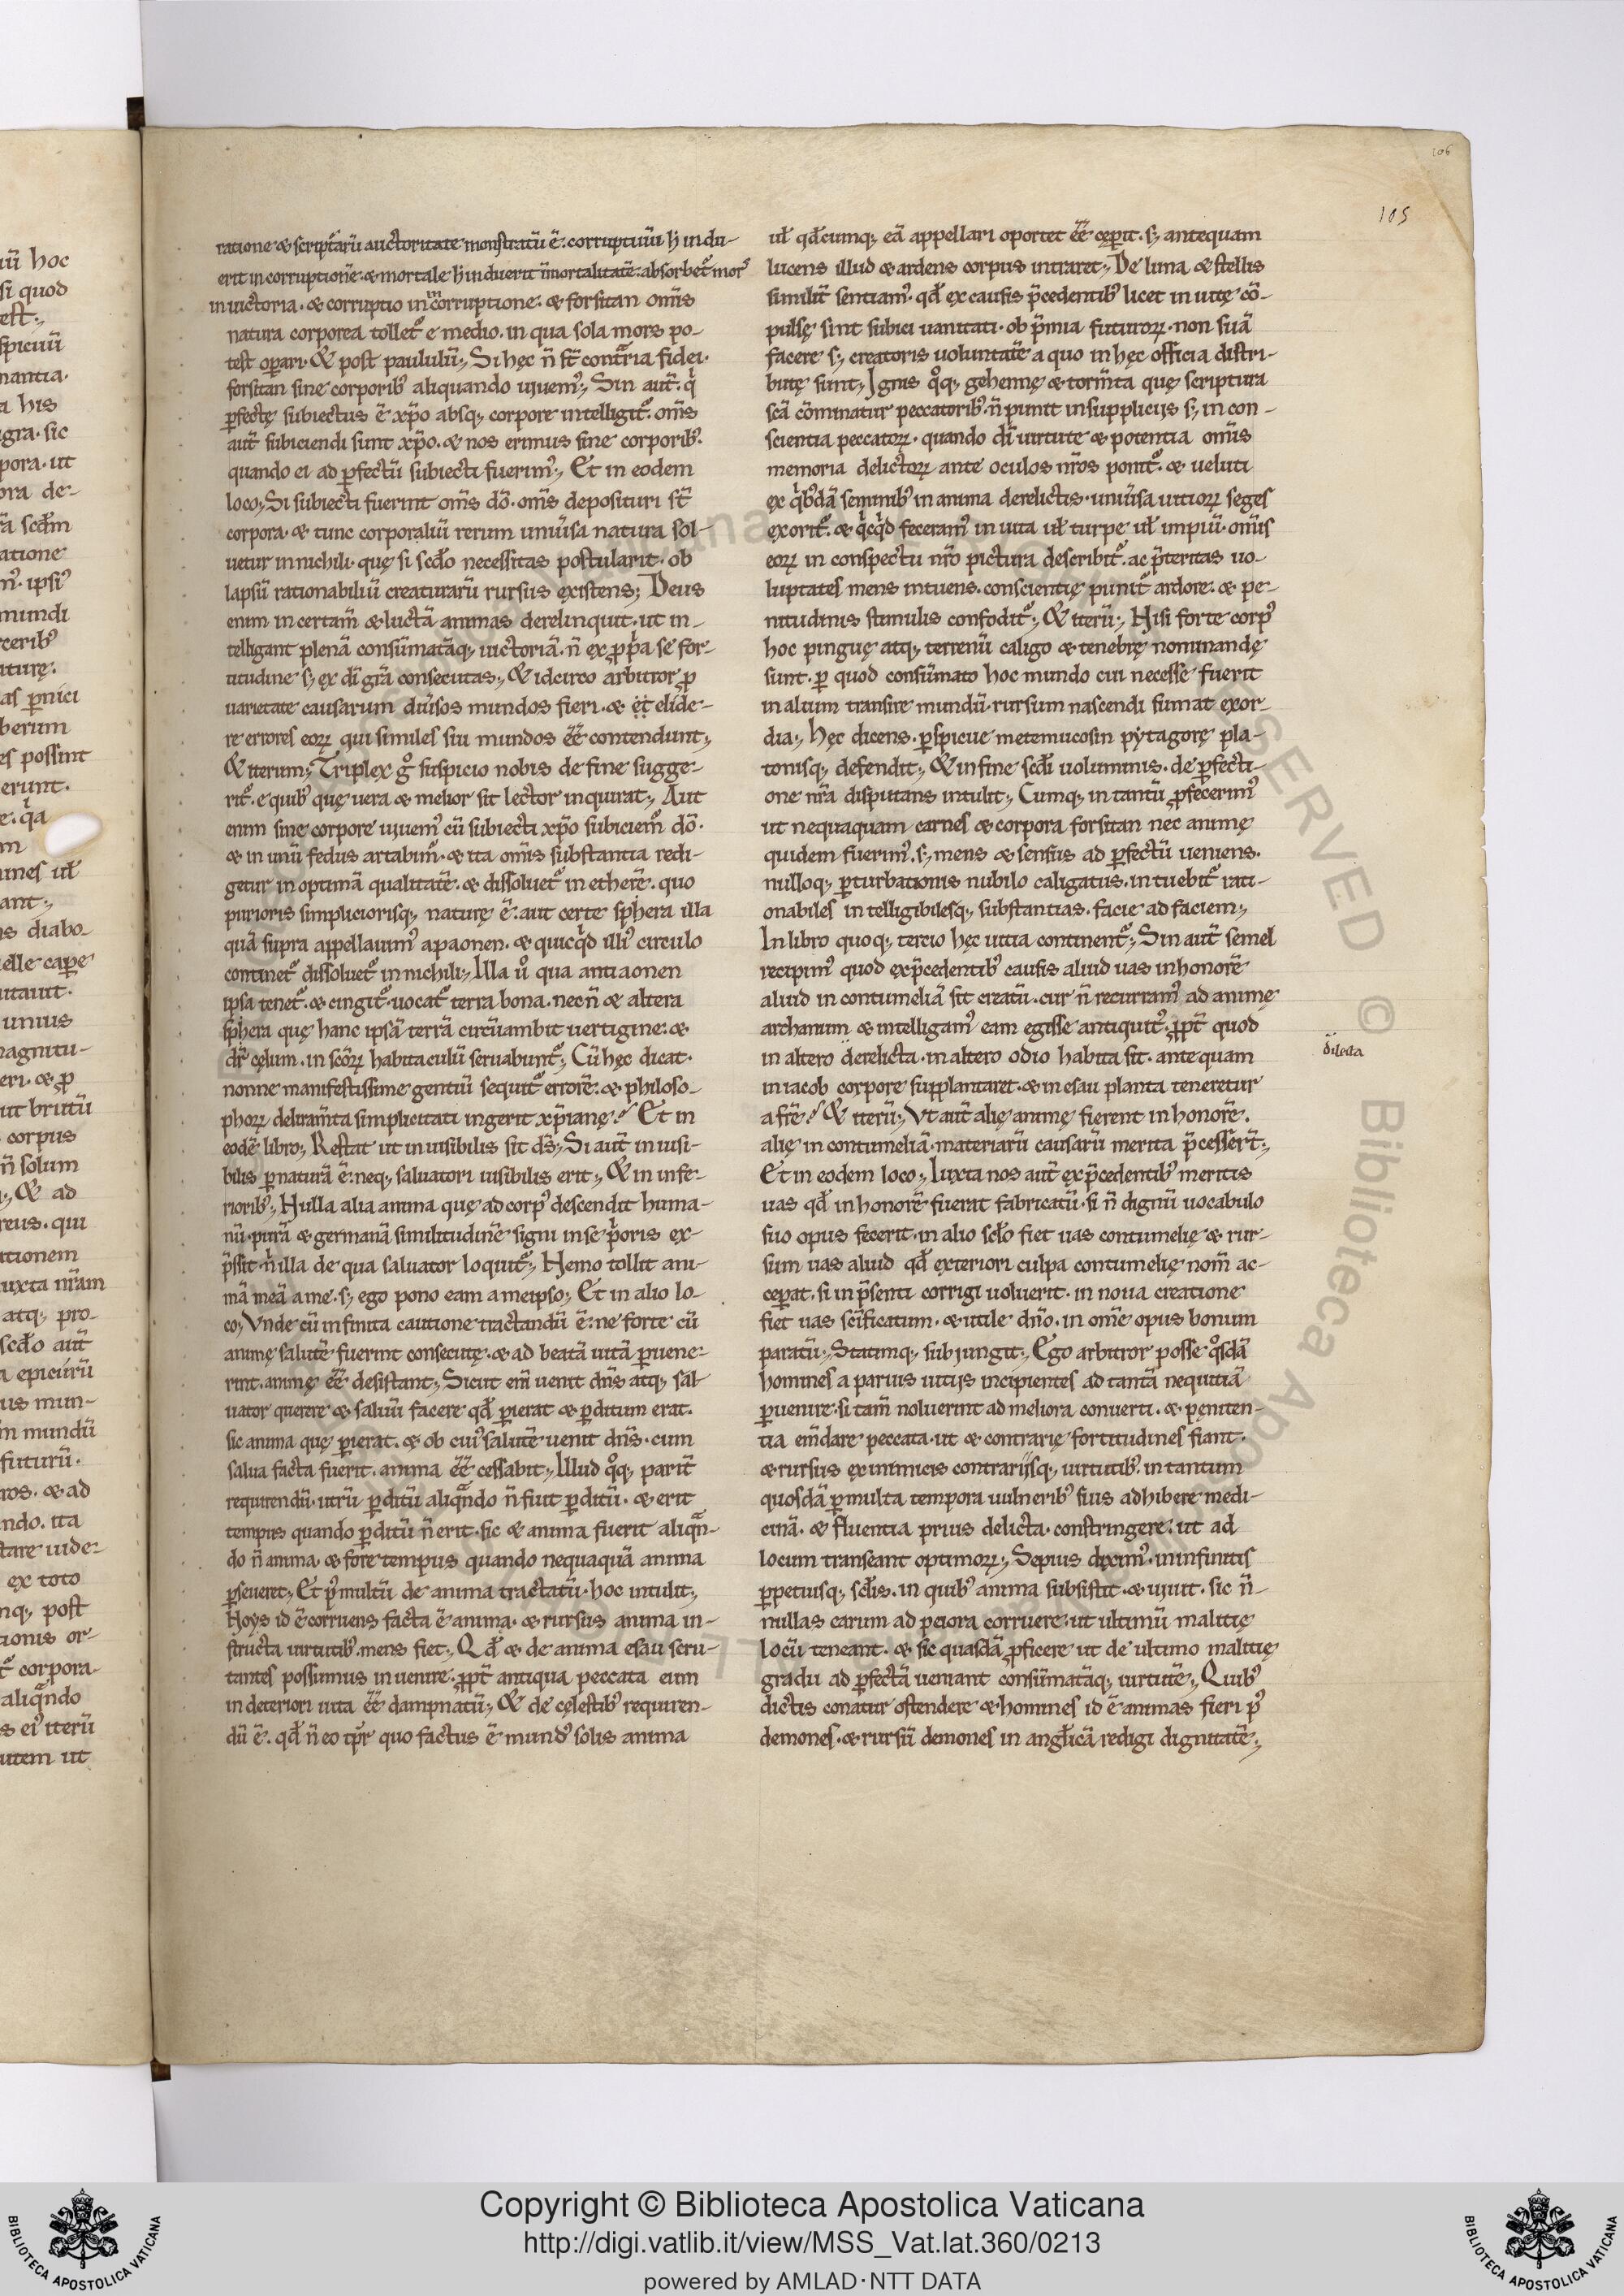 ratione & scripturarũ auctoritate monstratũ ẽ. corruptiuũ h̓ indu-
erit incorruptionẽ. & mortale h̓ induerit ĩmortalitatẽ. absorbet᷒ morꝰ
in uictoria. & corruptio in incorruptione. & forsitan om̃is
natura corporea tollet᷒ e medio. in qua sola mors po-
test oꝑari. & post paululũ; Si hęc ñ st̃ contraria fidei.
forsitan sine corporibꝰ aliquando uiuemꝰ; Sin aut̃. qͥ
ꝑfectę subiectus ẽ xp̃o absq; corpore intelligit᷒. om̃s
aut̃ subiciendi sunt xp̃o. & nos erimus sine corporibꝰ.
quando ei ad ꝑfectũ subiecti fuerimꝰ; Et in eodem
loco; Si subiecti fuerint om̃s dõ. om̃s deposituri st̃
corpora. & tunc corporaliũ rerum uniũsa natura sol-
uetur in nichili. quę si scđo necessitas postularit. ob
lapsũ rationabiliũ creaturarũ rursus existens; Deus
enim in certam̃ & luctã animas derelinquit. ut in-
telligant plenã consũmatãq; uictoriã. ñ ex ꝓpͥa se for-
titudine s; ex dĩ grã consecutas; & idcirco arbitror ꝓ
uarietate causarum diũsos mundos fieri. & et elide-
re errores eoꝝ qui similes sui mundos ẽẽ contendunt;
& iterum; Triplex gͦ suspicio nobis de fine sugge-
rit᷒. e quibꝰ quę uera & melior sit lector inquirat; Aut
enim sine corpore uiuemꝰ cũ subiecti xp̃o subiciem᷒ dõ.
& in unũ fedus artabim᷒. & ita om̃is substantia redi-
getur in optimã qualitatẽ. & dissoluet᷒ in etherẽ. quo
purioris simpliciorisq; naturę ẽ. aut certe sphera illa
quã supra appellauimꝰ apaonen. & quicqͥd illiꝰ circulo
continet᷒ dissoluet᷒ in nichili; Illa uͦ qua antiaonen
ipsa tenet᷒. & cingit᷒. uocat᷒ terra bona. necñ & altera
sphera quę hanc ipsã terrã circũambit uertigine. &
dr̃ cęlum. in scõꝝ habitaculũ seruabunt᷒; Cũ hęc dicat.
nonne manifestissime gentiũ sequit᷒ errorẽ. & philoso-
phoꝝ deliram̃ta simplicitati ingerit xp̃ianę? Et in
eodẽ libro; Restat ut inuisibilis sit ds̃; Si aut̃ inuisi-
bilis ꝑ naturã ẽ. neq; saluatori uisibilis erit; & in infe-
rioribꝰ; Nulla alia anima quę ad corpꝰ descendit huma-
nũ. purã & germanã similitudinẽ signi in se pͥoris ex-
p̃ssit. nͥ illa de qua saluator loquit᷒; Nemo tollit ani-
mã meã a me. s; ego pono eam a meipso; Et in alio lo-
co; Vnde cũ infinita cautione tractandũ ẽ. ne forte cũ
animę salutẽ fuerint consecutę. & ad beatã uitã ꝑuene-
rint. animę ẽẽ desistant; Sicut em̃ uenit dñs atq; sal-
uator querere & saluũ facere qđ ꝑierat & ꝑditum erat.
sic anima quę ꝑierat. & ob cuiꝰ salutẽ uenit dñs. cum
salua facta fuerit. anima ẽẽ cessabit; Illud qͦq; parit̃
requirendũ. utrũ ꝑditũ aliqᷓndo ñ fuit ꝑditũ. & erit
tempus quando ꝑditũ ñ erit. sic & anima fuerit aliqᷓn-
do ñ anima. & fore tempus quando nequaquã anima
ꝑseueret; Et pꝰ multũ de anima tractatũ. hoc intulit;
Noys id ẽ corruens facta ẽ anima. & rursus anima in-
structa uirtutibꝰ. mens fiet; Qđ & de anima esau scru-
tantes possumus inuenire. ꝓpt̃ antiqua peccata eum
in deteriori uita ẽẽ dampnatũ; & de cęlestibꝰ requiren-
dũ ẽ. qđ ñ eo tp̃r quo factus ẽ mundꝰ solis anima
uł qđcumq; eã appellari oportet ẽẽ cęꝑit. s; antequam
lucens illud & ardens corpus intraret; De luna & stellis
similit̃ sentiamꝰ. qđ ex causis p̃cedentibꝰ licet inuitę cõ-
pulsę sint subici uanitati. ob p̃mia futuroꝝ. non suã
facere s; creatoris uoluntatẽ a quo in hęc officia distri-
butę sunt; Ignis qͦq; gehennę & torm̃ta quę scriptura
scã cõminatur peccatoribꝰ. ñ punit in supplicijs s; in con-
scientia peccatoꝝ. quando dĩ uirtute & potentia om̃is
memoria delictoꝝ ante oculos nr̃os ponit᷒. & ueluti
ex qͥbꝰdã seminibꝰ in anima derelictis. uniũsa uitioꝝ seges
exorit᷒. & qͥcqͥd feceramꝰ in uita uł turpe uł impiũ. om̃is
eoꝝ in conspectu nr̃o pictura describit᷒. ac p̃teritas uo-
luptates mens intuens. conscientię punit᷒ ardore. & pe-
nitudinis stimulis confodit᷒; & iterũ; Nisi forte corpꝰ
hoc pinguę atq; terrenũ caligo & tenebrę nominandę
sunt. ꝑ quod consũmato hoc mundo cui necesse fuerit
in alium transire mundũ. rursum nascendi sumat exor-
dia; Hęc dicens. ꝑspicue metemucosin pytagorę pla-
tonisq; defendit; & in fine scđi uoluminis. de ꝑfecti-
one nr̃a disputans intulit; Cumq; in tantũ ꝓfecerimꝰ
ut nequaquam carnes & corpora forsitan nec animę
quidem fuerimꝰ. s; mens & sensus ad ꝑfectũ ueniens.
nulloq; ꝑturbationis nubilo caligatus. intuebit᷒ rati-
onabiles intelligibilesq; substantias. facie ad faciem;
In libro quoq; tercio hęc uitia continent᷒; Sin aut̃ semel
recipimꝰ quod ex p̃cedentibꝰ causis aliud uas in honorẽ
aliud in contumeliã sit creatũ. cur ñ recurramꝰ ad animę
archanum & intelligamꝰ eam egisse antiquitꝰ. ꝓpt̃ quod
in altero derelicta. in altero odio habita sit. antequam
in iacob corpore supplantaret. & in esau planta teneretur
a fr̃e? & iterũ; Vt aut̃ alię animę fierent in honorẽ.
alię in contumeliã. materiarũ causarũ merita p̃cesser̃t;
Et in eodem loco; Iuxta nos aut̃ ex p̃cedentibꝰ meritis
uas qđ in honorẽ fuerat fabricatũ. si ñ dignũ uocabulo
suo opus fecerit. in alio scło fiet uas contumelię & rur-
sum uas aliud qđ exteriori culpa contumelię nom̃ ac-
ceꝑat. si in p̃senti corrigi uoluerit. in noua creatione
fiet uas sc̃ificatum. & utile dño. in om̃e opus bonum
paratũ; Statimq; subjungit; Ego arbitror posse qͦsdã
homines a paruis uitijs incipientes ad tantã nequitiã
ꝑuenire. si tam̃ noluerint ad meliora conuerti. & pęniten-
tia em̃dare peccata. ut & contrarię fortitudines fiant.
& rursus ex inimicis contrarijsq; uirtutibꝰ. in tantum
quosdã ꝑ multa tempora uulneribꝰ suis adhibere medi-
cinã. & fluentia prius delicta. constringere. ut ad
locum transeant optimoꝝ; Sepius diximꝰ. in infinitis
ꝑpetuisq; scłis. in quibꝰ anima subsistit. & uiuit. sic ñ-
nullas earum ad peiora corruere. ut ultimũ malitię
locũ teneant. & sic quasdã ꝓficere ut de ultimo malitię
gradu ad ꝑfectã ueniant consũmatãq; uirtutẽ; Quibꝰ
dictis conatur ostendere & homines id ẽ animas fieri pꝰ
demones. & rursũ demones in angłicã redigi dignitatẽ;
dilecta
106
105
Copyright © Biblioteca Apostolica Vaticana
http://digi.vatlib.it/view/MSS_Vat.lat.360/0213
powered by AMLAD·NTT DATA
BIBLIOTECA APOSTOLICA VATICANA
BIBLIOTECA APOSTOLICA VATICANA